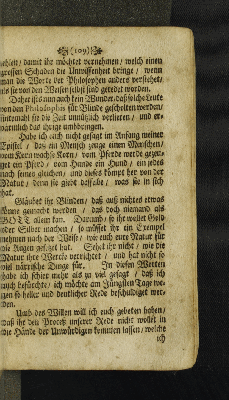 (109)
zehlet / damit ihr möchtet vernehmen / welch einen
grossen Schaden die Unwissenheit bringe / wenn
man die Worte der Philosophen anders verstehet/
als sie von den Weisen selbst sind geredet worden.
Daher ist es nun auch kein Wunder, daß solche Leute
von den Philosophis für Blinde gescholten werden/
sintemahl sie die Zeit unnützlich verlieren / und er-
bärmlich das ihrige umbbringen.
Habe ich euch nicht gesagt im Anfang meiner
Epistel / daß ein Mensch zeuge einen Menschen/
vom Korn wachse Korn / vom Pferde werde gezeu-
get ein Pferd / vom Hunde ein Hund / ein jedes
nach seines gleichen / und dieses kömpt her von der
Natur / denn sie giebt dasselbe / was sie in sich
hat.
Gläubet ihr Blinden / daß auß nichtes etwas
könne gemacht werden / das doch niemand als
GOTT allein kan. Darumb / so ihr wollet Gold
oder Silber machen / so müsset ihr ein Exempel
nehmen nach der Weise / wie euch eure Natur für
die Augen gesetzet hat. Sehet ihr nicht / wie die
Natur ihre Werck verrichtet / und hat nicht so
viel närrische Dinge für. In diesen Worten
habe ich schier mehr als zu viel gesagt / daß ich
auch befürchte / ich möchte am Jüngsten Tage we-
gen so heller und deutlicher Rede beschuldiget wer-
den.
Umb des Willen will ich euch gebeten haben/
daß ihr den Proceß unserer Rede nicht wollet in
die Hände der Unwürdigen kommen lassen / welche
ich